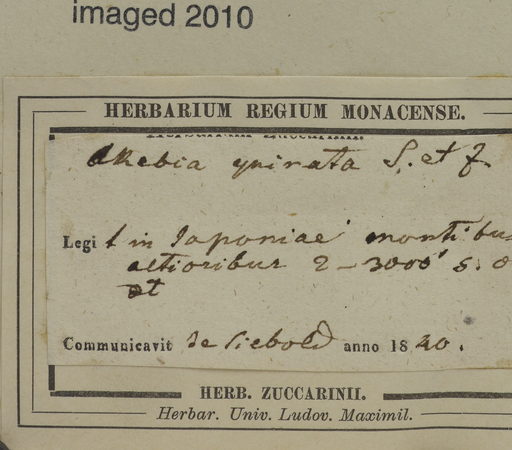 imaged 2010
HERBARIUM REGIUM MONACENSE.
Akebia quinata S. et Z.
Legit in Japoniae montibus
altioribus 2-3000' s. o
et
Communicavit de Siebold anno 1840.
HERB. ZUCCARINII.
Herbar. Univ. Ludov. Maximil.